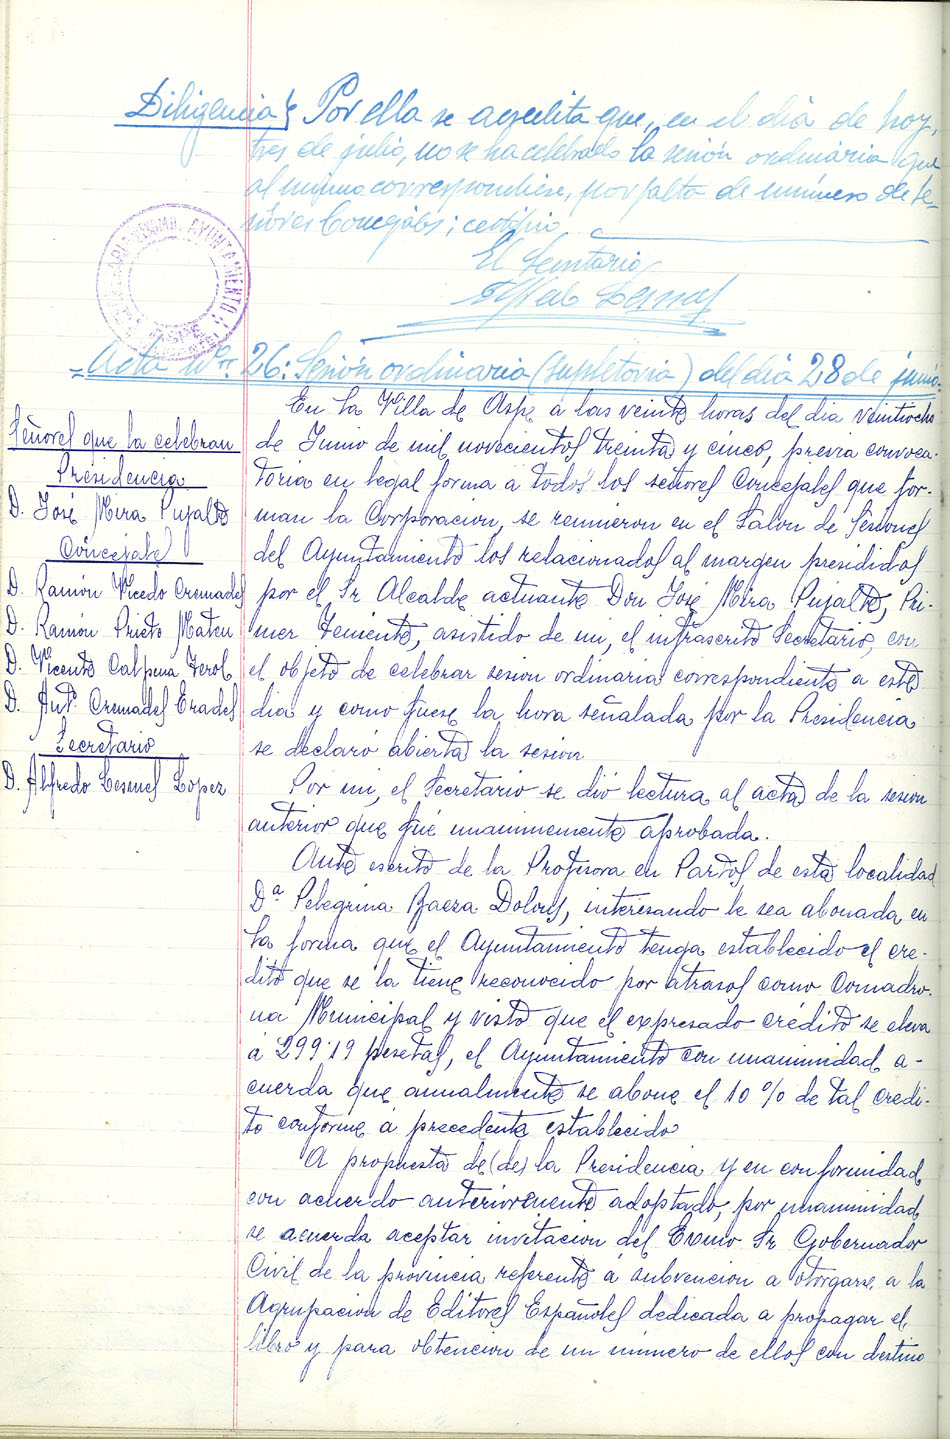 Diligencia} Por ella se acredita que, en el día de hoy,
tres de julio, no se ha celebrado la sesión ordinaria que
al mismo correspondiese, por falta de número de se-
ñores Concejales; certifico.
El Secretario
SECRETARIA DEL AYUNTAMIENTO
ASPE
(ALICANTE)
Acta Nº. 26: Sesión ordinaria (supletoria) del día 28 de junio.
Señores que la celebran
Presidencia
D. José Mira Pujalte
Concejales
D. Ramón Vicedo Cremades
D. Ramón Prieto Mateu
D. Vicente Calpena Ferol
D. Antº. Cremades Erades
Secretario
D. Alfredo Lesmes Lopez
En la Villa de Aspe a las veinte horas del dia veintiocho
de Junio de mil novecientos treinta y cinco, previa convoca-
toria en legal forma a todos los señores Concejales que for-
man la Corporacion, se reunieron en el Salon de Sesiones
del Ayuntamiento los relacionados al margen presididos
por el Sr Alcalde actuante Don José Mira Pujalte, Pri-
mer Teniente, asistido de mi, el infrascrito Secretario, con
el objeto de celebrar sesion ordinaria correspondiente a este
dia y como fuese la hora señalada por la Presidencia
se declaró abierta la sesion
Por mi, el Secretario se dió lectura al acta de la sesion
anterior que fué unanimemente aprobada.
Ante escrito de la Profesora en Partos de esta localidad
Dª Pelegrina Baeza Dolores, interesando le sea abonada en
la forma que el Ayuntamiento tenga establecido el cre-
dito que se la tiene reconocido por atrasos como Comadro-
na Municipal y visto que el expresado crédito se eleva
a 299'19 pesetas, el Ayuntamiento con unanimidad a-
cuerda que anualmente se abone el 10 % de tal credi-
to conforme a precedente establecido
A propuesta de (de) la Presidencia y en conformidad
con acuerdo anteriormente adoptado, por unanimidad
se acuerda aceptar invitacion del Excmo Sr Gobernador
Civil de la provincia referente a subvencion a otorgarse a la
Agrupacion de Editores Españoles dedicada a propagar el
libro y para obtencion de un número de ellos con destino